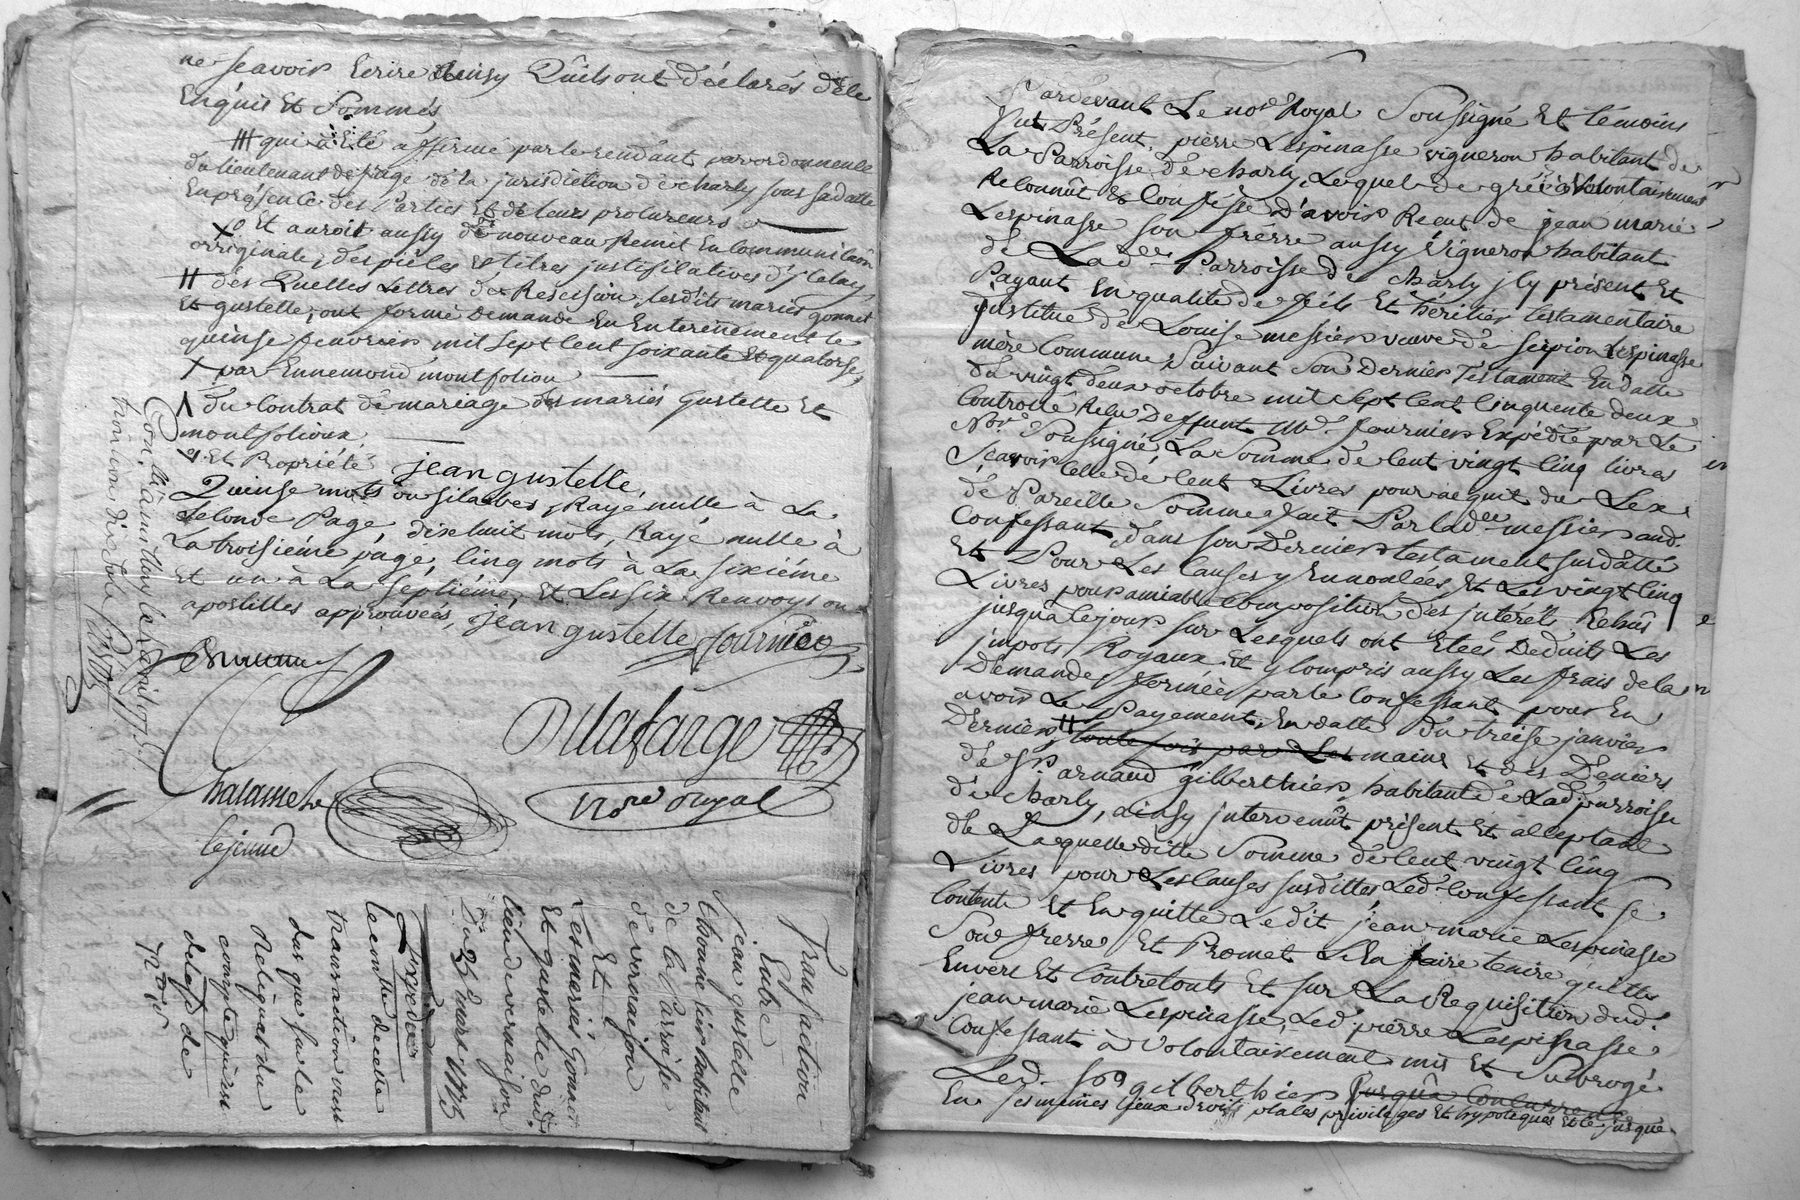 ne scavoir Ecrire Ainsy Quils ont déclarés dele
Enquis Et Sommés
qui a Eté affirmé par le rendant par ordonnence
du lieutenant de juge de la jurisdiction de charly sous sa datte
En présence des Parties Et de leurs procureurs
Et auroit aussy de nouveau Remit En communication
originale, des pièces Et titres justificatives d'jcelay
des Quelles Lettres de Rescision, lesdits mariés gonnet
Et gustelle, ont formé Demande En Enterinement le
quinse fevrier mil sept cent soixante Et quatorse,
par Ennemond montfolion
du Contrat de mariage des mariés gustelle Et
montfolioux,
Et Propriété jean gustelle,
Quinse mots ou silabes Rayé nulle à La
seconde Page, dixhuit mots, Rayé nulle à
La troisiéme page, cinq mots à La sixiéme
Et un à La septiéme, Et Les six Renvoys ou
apostilles approuvées, jean gustelle fournier
Delafarge
Nore Royal
lejeune
Transaction
Entre
jean gustelle
habitant
de la Parroisse
de vernaison
Et
Les mariés Gonnet
Et gustelle dud.
lieu de vernaison
Du 25 mars 1775
Expedier
le compte de cette
transaction aussi
Reliquat du
compte
Pardevant Le nore Royal Soussigné Et témoins
fut Présent, pierre Lespinasse vigneron habitant de
La Parroisse de charly, Lequel de gré Et Volontairement
Reconnût Et Confesse D'avoir Recut de jean marie
Lespinasse son frérre aussy Vigneron habitant
de La d.e Parroisse de charly jcy présent Et
Payant En qualité de fils Et héritier testamentaire
jnstitué de Louise messier veuve de scipion Lespinasse
mére Commune, Suivant Son Dernier Testament En datte
du vingt deux octobre mil sept cent Cinquente deux
Controllé Relu Deffunt Me. fournier Expédié par Le
Nore Soussigné, La Somme de cent vingt cinq livres
Scavoir Celle de cent Livres pour acquit du Lex
de Pareille Somme fait Par lad.e messier aud.
Confessant, dans son Dernier testament susdatté
Et Pour Les Causes y Ennoncées, Et Les vingt cinq
Livres pour amiable Composition des jnteréts Echûs
jusqu'à ce jour sur Lesquels ont Etées Déduits Les
jmpots Royaux, Et y Compris aussy Les frais de la
Demande formée par le Confessant pour En
avoir Le Payement, En datte du treise janvier
Dernier toutefois par Les mains Et des Deniers
de Sr. arnaud gilberthier, habitant de Lad. parroisse
de Charly, ainsy jntervenût présent Et acceptant
de Laquelle ditte Somme de cent vingt Cinq
Livres pour Les Causes susdittes, Led. Confessant se
Contente Et En quitte Le dit jean marie Lespinasse
Son frerre Et Promet L'En faire tenire quitte
Envers Et Contre touts Et sur La Requisition dud.
jean marie Lespinasse, Led. pierre Lespinasse
Confessant à Volontairement mis Et Subrogé
Led. Sr. gilberthier jusqu'à Concurrence
En ses mêmes lieux droits places privileges Et hypoteques Et ce jusque